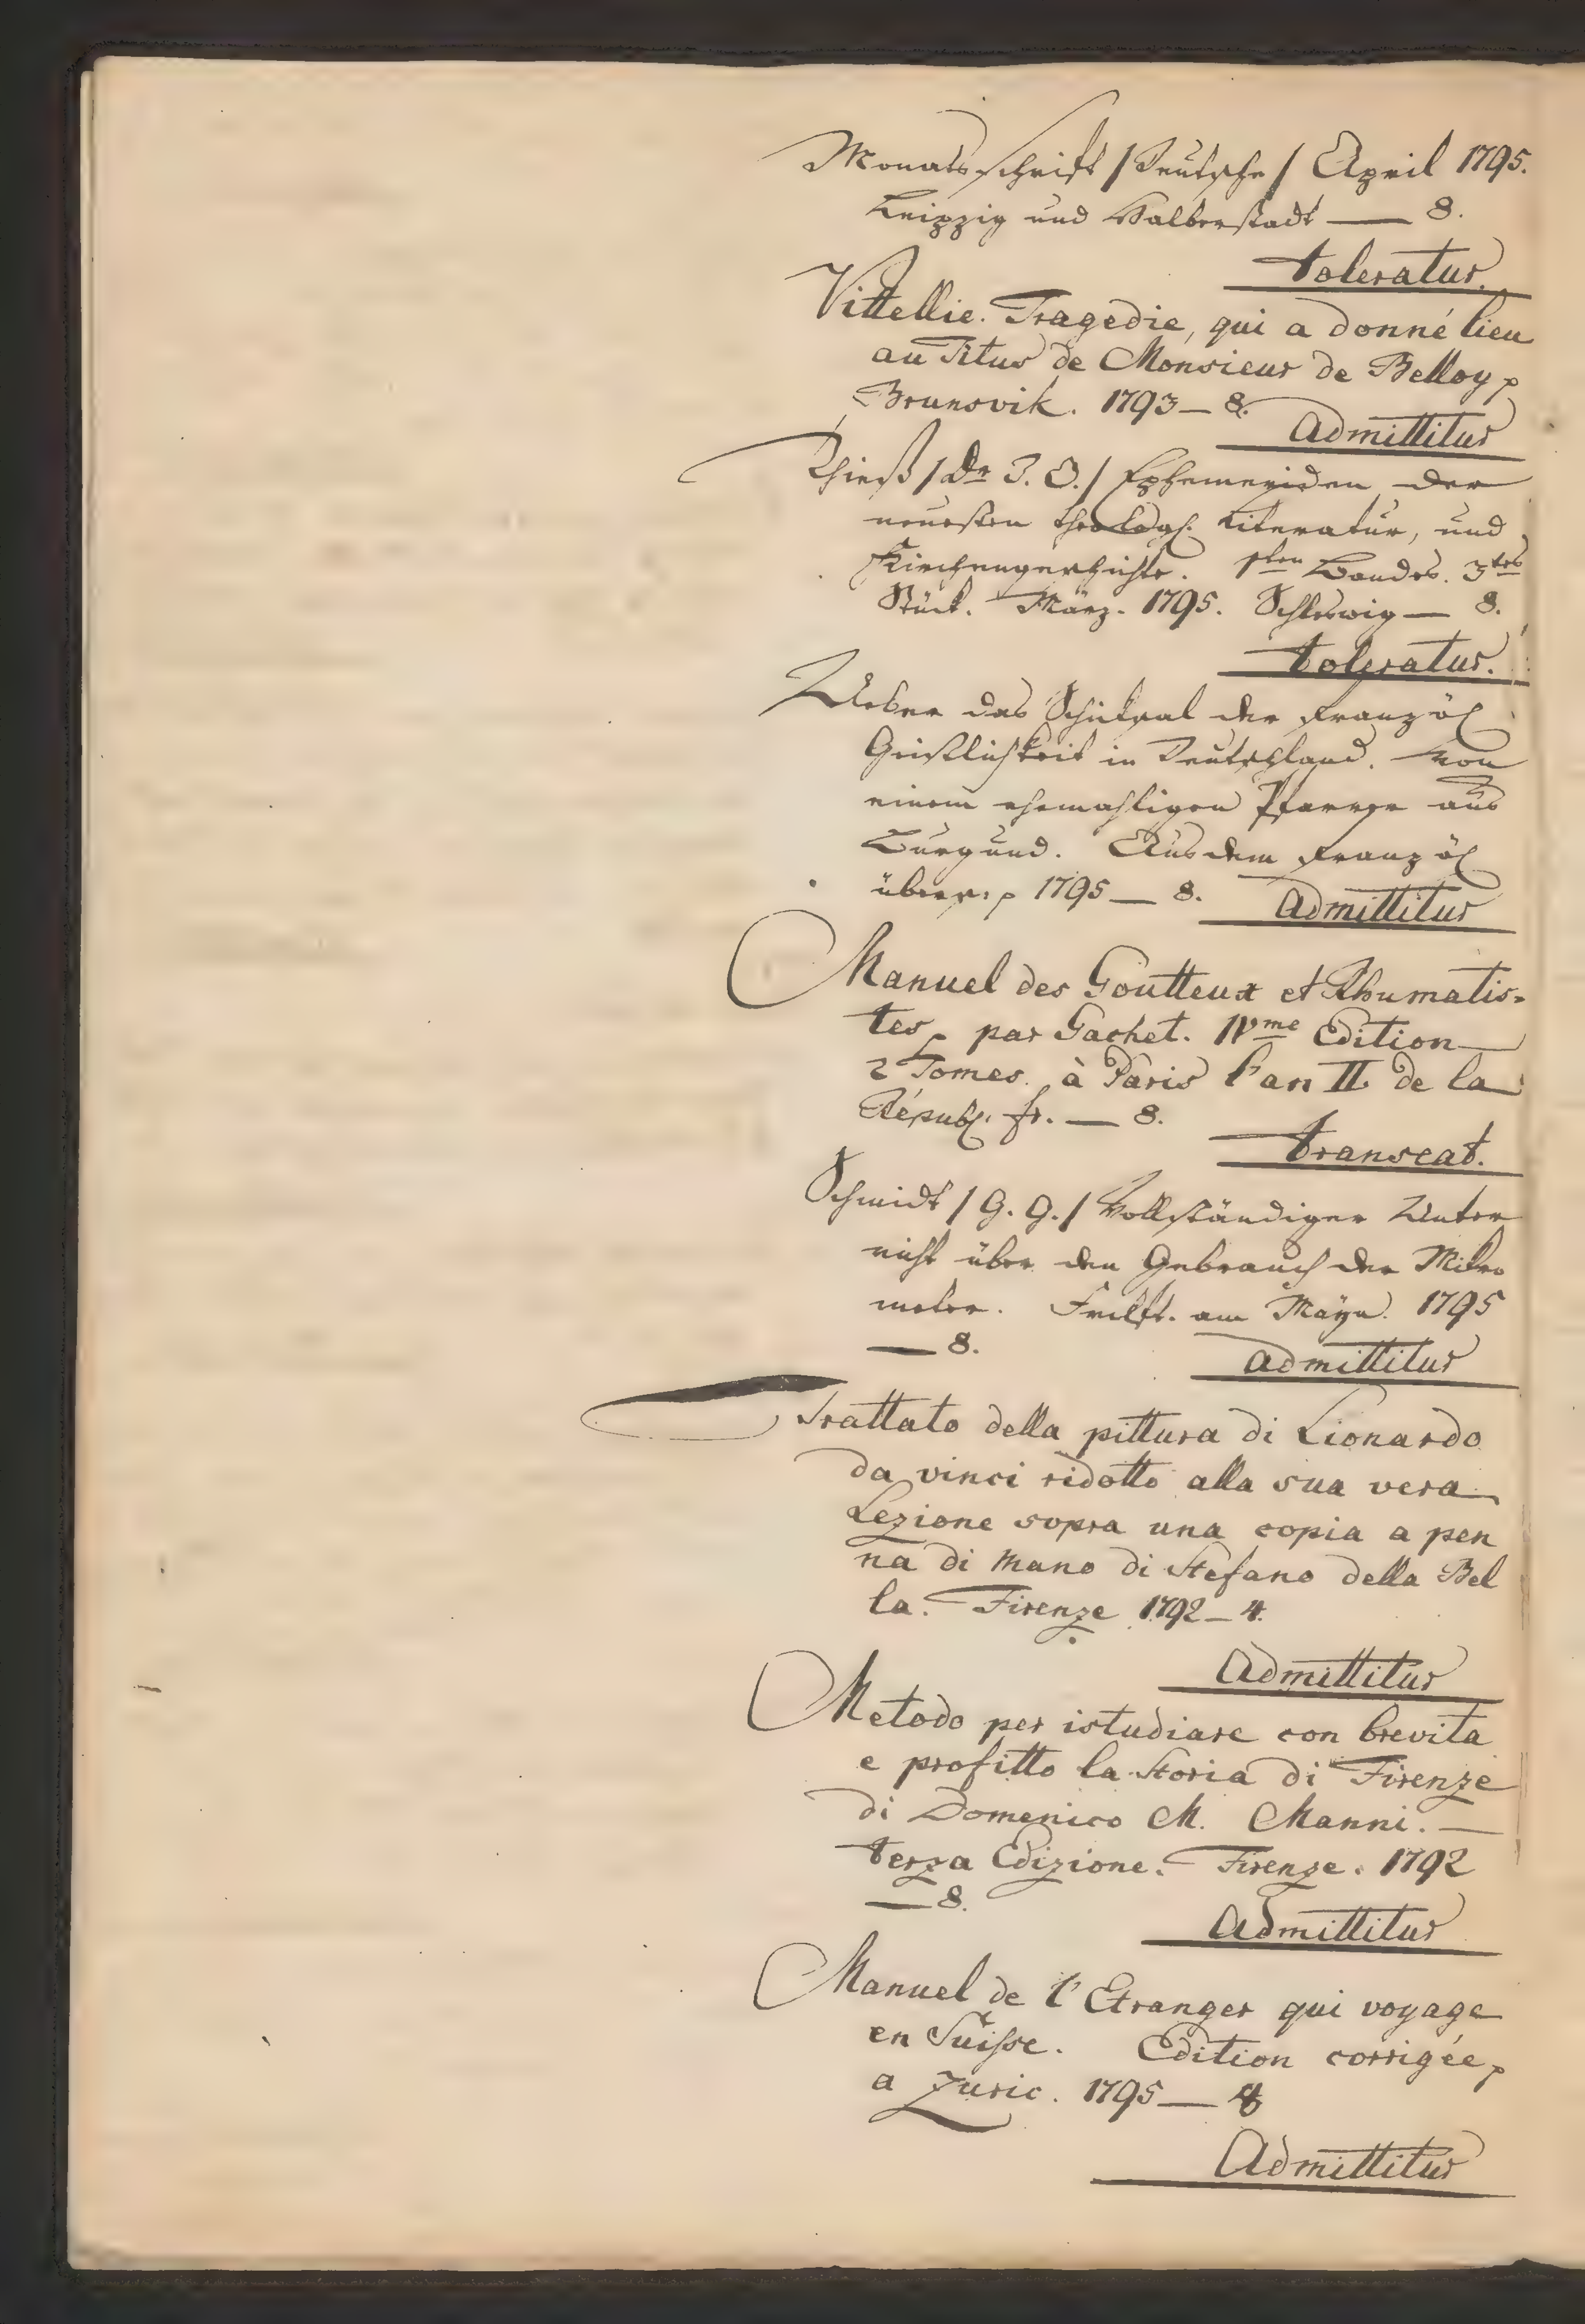 Monatsschrift /Deutsche/ April 1795.
Leipzig und Halberstadt — 8.
toleratur.
Vittellie. Tragedie, qui a donné lieu
au Titus de Monsieur de Belloy p
Brunsvik. 1793 — 8.
Admittitur
Thieß /Dr J. O./ Ephemeriden der
neuesten theologs. Literatur, und
Kirchengeschichte. 1sten Bandes. 3tes
Stück. März. 1795. Schleswig — 8.
toleratur.
Ueber das Schicksal der französ.
Geistlichkeit in Deutschland. Von
einem ehemahligen Pfarrer aus
Burgund. Aus dem französ.
übers. p 1795 — 8.
Admittitur
Manuel des Goutteux et Rhumatis-
tes, par Gachet. IVme Edition
2 Tomes. à Paris l'an II. de la
Républ. fr. — 8.
transeat.
Schmidt / G. G. / Vollständiger Unter
richt über den Gebrauch der Mikro
meter. Frkft. am Mayn. 1795
— 8.
admittitur
Trattato della pittura di Lionardo
da vinci ridotto alla sua vera
Lezione sopra una copia a pen
na di mano di Stefano della Bel
la. Firenze 1792 — 4.
Admittitur
Metodo per istudiare con brevita
e profitto la storia di Firenze
di Domenico M. Manni. —
terza Edizione. Firenze. 1792
— 8.
Admittitur
Manuel de l'Etranger qui voyage
en Suisse. Edition corrigée p
a Zuric. 1795 — 8
Admittitur